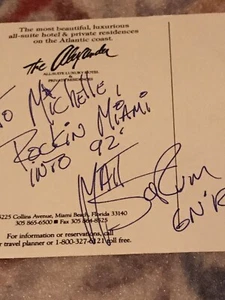 The most beautiful, luxurious
all-suite hotel & private residences
on the Atlantic coast.
The Alexander
ALL-SUITE LUXURY HOTEL
& PRIVATE RESIDENCES
TO MICHELLE,
ROCKIN MIAMI
INTO 92'
MATT SORUM
GN'R
5225 Collins Avenue, Miami Beach, Florida 33140
305 865-6500 • Fax 305 864-8525
For information or reservations, call
your travel planner or 1-800-327-6121 toll free.